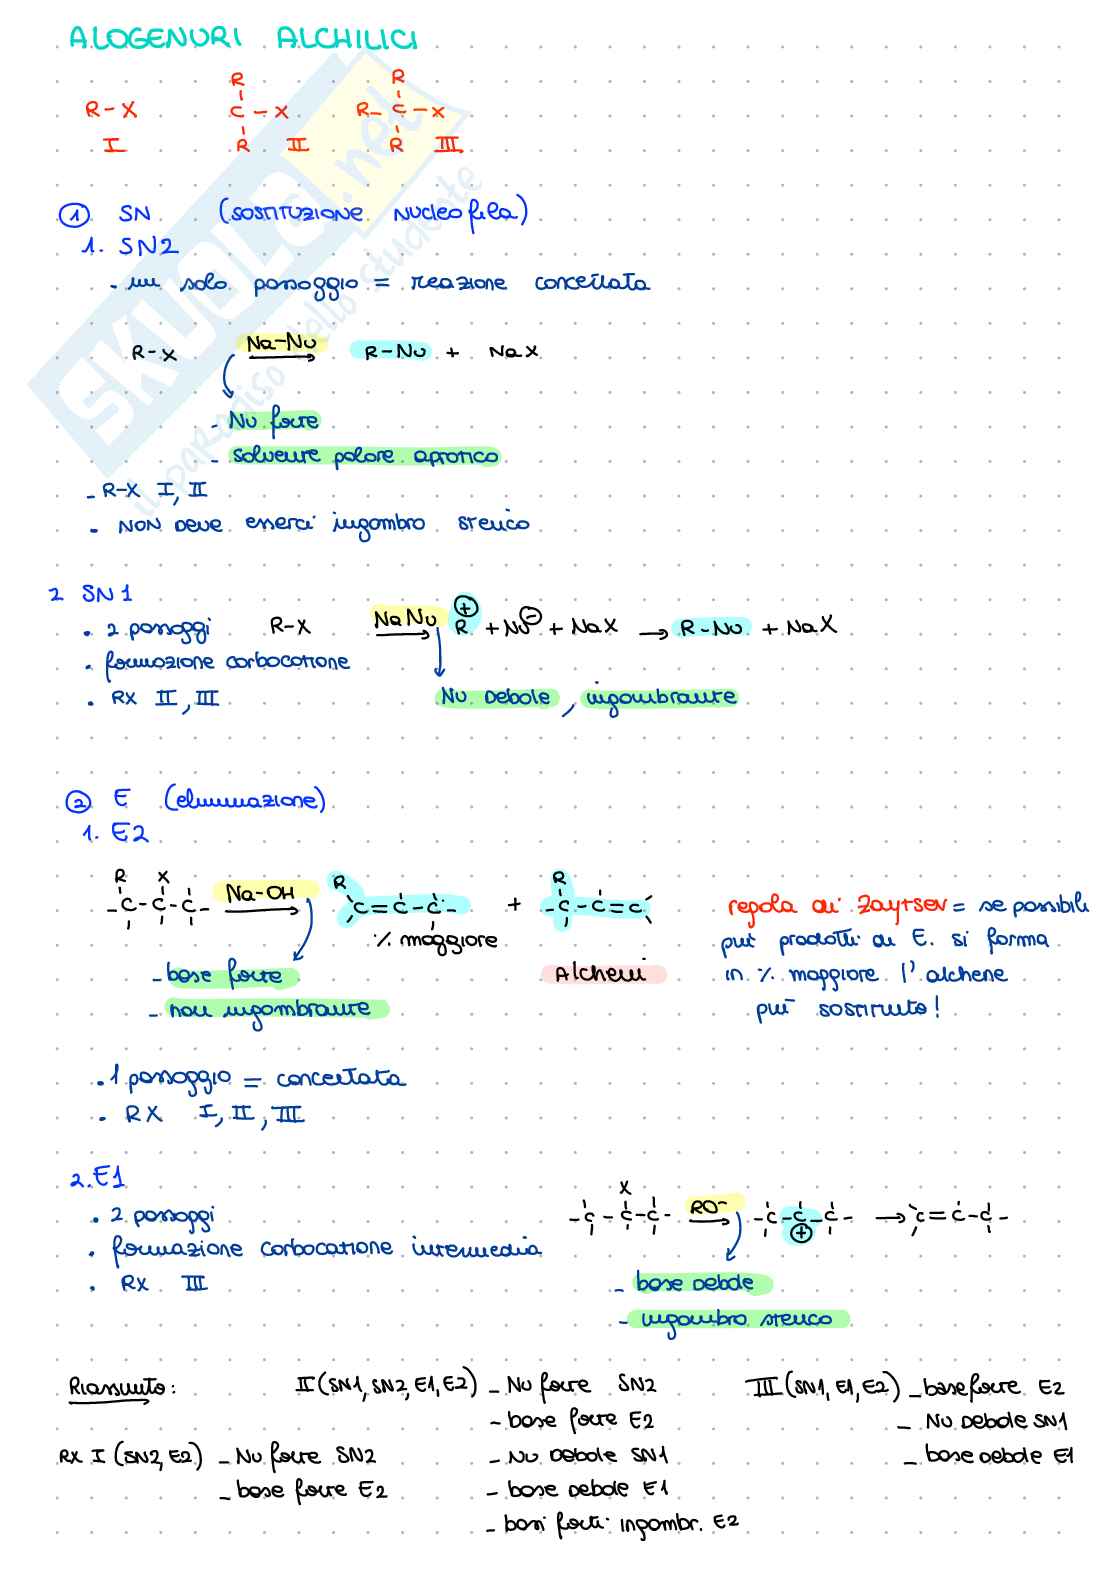 ALOGENURI ALCHILICI
R-X
I
R
C - X
R II
R
R - C - X
R III
① SN (SOSTITUZIONE NUCLEOFILA)
1. SN2
- un solo passaggio = reazione concertata
R-X Na-Nu R-Nu + NaX
- Nu forte
- solvente polare aprotico
- R-X I, II
- NON DEVE esserci ingombro sterico
2 SN1
• 2 passaggi R-X NaNu R⊕ + Nu⊖ + NaX → R-Nu + NaX
• formazione carbocatione
• RX II, III Nu DEBOLE, ingombrante
② E (eliminazione)
1. E2
R X
-C-C-C- Na-OH R C=C-C- + R -C-C=C
% maggiore
- base forte Alcheni
- non ingombrante
regola di Zaytsev = se possibili
più prodotti di E. si forma
in % maggiore l'alchene
più sostituito!
• 1 passaggio = concertata
• RX I, II, III
2. E1
• 2 passaggi
• formazione carbocatione intermedia
• RX III
X
-C-C-C- RO⁻ -C-C-C- → C=C-C-
⊕
- base debole
- ingombro sterico
Riassunto:
RX I (SN2, E2) - Nu forte SN2
- base forte E2
II (SN1, SN2, E1, E2) - Nu forte SN2
- base forte E2
- Nu DEBOLE SN1
- base DEBOLE E1
- basi forti ingombr. E2
III (SN1, E1, E2) - base forte E2
- Nu DEBOLE SN1
- base DEBOLE E1
SKUOLA.net
il paradiso dello studente